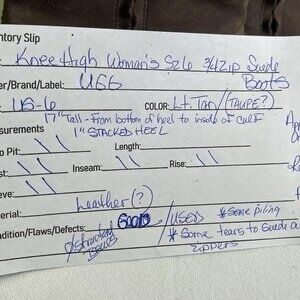 ntory Slip
Knee High Woman's Sz 6 3/4 Zip Suede Boots
er/Brand/Label: UGG
US-6 COLOR: Lt. Tan/(TAUPE?)
17" Tall - From bottom of heel to inside of calf
surements 1" STACKED HEEL
to Pit: \\ Length:
st: \\ Inseam: \\ Rise: \\
eve: \\
erial: Leather(?)
ndition/Flaws/Defects: GOOD/USED * Some piling
* Some tears to Suede a
zippers